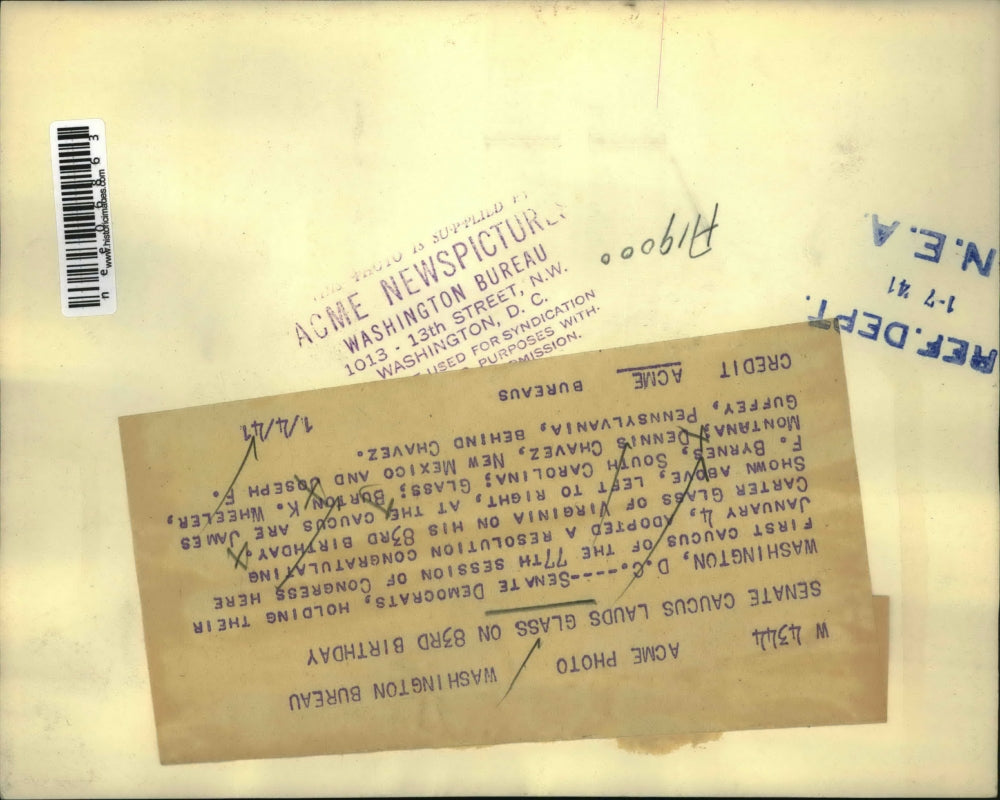 W 4344 ACME PHOTO WASHINGTON BUREAU
SENATE CAUCUS LAUDS GLASS ON 83RD BIRTHDAY
WASHINGTON, D.C.-----SENATE DEMOCRATS, HOLDING THEIR
FIRST CAUCUS OF THE 77TH SESSION OF CONGRESS HERE
JANUARY 4, ADOPTED A RESOLUTION CONGRATULATING
CARTER GLASS OF VIRGINIA ON HIS 83RD BIRTHDAY.
SHOWN ABOVE, LEFT TO RIGHT, AT THE CAUCUS ARE JAMES
F. BYRNES, SOUTH CAROLINA; GLASS; BURTON K. WHEELER,
MONTANA; DENNIS CHAVEZ, NEW MEXICO AND JOSEPH F.
GUFFEY, PENNSYLVANIA, BEHIND CHAVEZ.
CREDIT ACME BUREAUS 1/4/41
PHOTO IS SUPPLIED BY
ACME NEWSPICTURES
WASHINGTON BUREAU
1013 - 13th STREET, N.W.
WASHINGTON, D. C.
USED FOR SYNDICATION
PURPOSES WITH-
MISSION.
A19000
REF. DEPT.
1-7 '41
N.E.A.
nee06863
www.historicimages.com